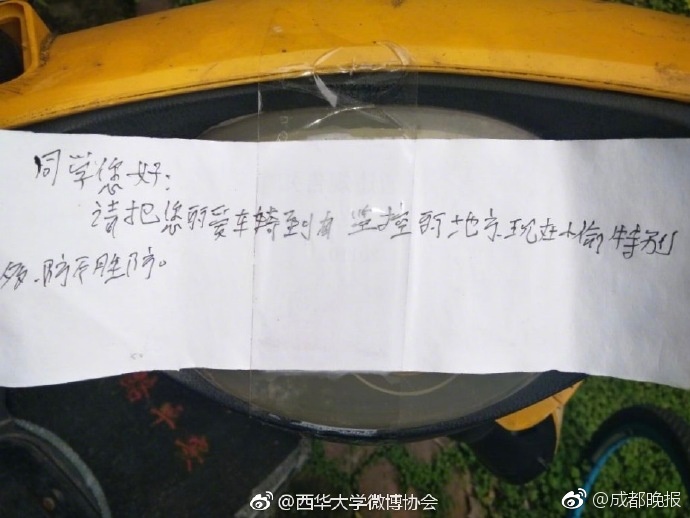 同学您好:
请把您的爱车转到有坚控的地方现在小偷特别
多,防不胜防。
@西华大学微博协会
@成都晚报